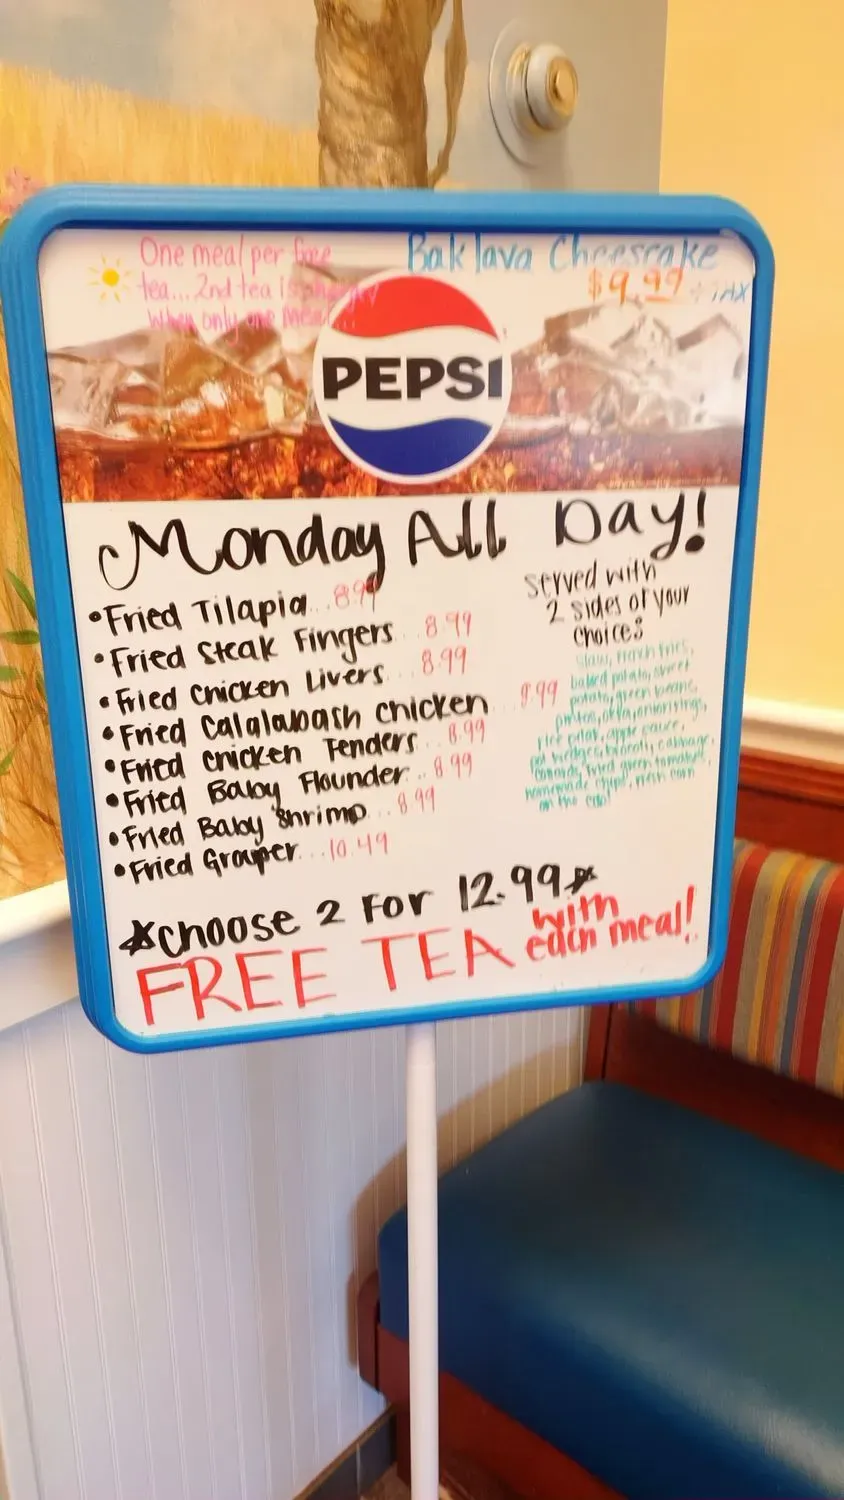 One meal per free
tea... 2nd tea is
when only one meal
Baklava Cheesecake
$9.99 + tax
PEPSI
Monday All Day!
• Fried Tilapia... 8.99
• Fried Steak Fingers .. 8.99
• Fried Chicken Livers ... 8.99
• Fried Calalabash chicken ... 8.99
• Fried Chicken Tenders .. 8.99
• Fried Baby Flounder .. 8.99
• Fried Baby Shrimp ... 8.99
• Fried Grouper ... 10.49
served with
2 sides of your
choice:
slaw, french fries,
baked potato, sweet
potato, green beans,
pintos, okra, onion rings,
rice pilaf, apple sauce,
broccoli, cabbage,
fried green tomatoes,
homemade chips, fresh corn
on the cob!
*choose 2 For 12.99*
FREE TEA with
each meal!